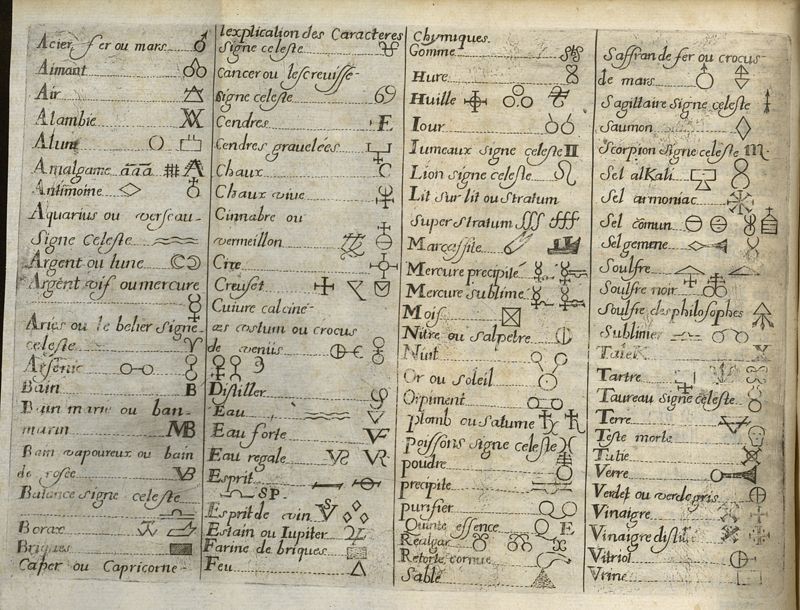 l'explication des Caracteres Chymiques.
Acier, fer ou mars
Aimant
Air
Alambic
Alunt
Amalgame aaa
Antimoine
Aquarius ou verseau-
Signe Celeste
Argent ou lune
Argent vif ou mercure
Aries ou le belier signe
celeste
Arsenic
Bain B
Bain marie ou ban-
marin MB
Bain vapoureux ou bain
de rosée VB
Balance signe celeste
Borax
Briques
Caper ou Capricorne-
Signe celeste
Cancer ou lescrevisse-
signe celeste 69
Cendres E
Cendres gravelées
Chaux C
Chaux vive
Cinnabre ou
vermeillon
Cire
Creuset
Cuivre calciné-
æs ustum ou crocus
de venus
Distiller
Eau
Eau forte
Eau regale
Esprit
SP
Esprit de vin
Estain ou Iupiter
Farine de briques
Feu
Gomme
Hure
Huille
Iour
Iumeaux signe celeste II
Lion signe celeste
Lit sur lit ou stratum
Super Stratum SSS fff
Marcassite
Mercure precipité
Mercure sublimé
Mois
Nitre ou salpetre
Nuit
Or ou soleil
Orpiment
plomb ou saturne
poissons signe celeste
poudre
precipite
purifier
Quinte essence E
Realgar
Retorte cornue
Sable
Saffran de fer ou crocus
de mars
Sagittaire signe celeste
Saumon
Scorpion signe celeste
Sel alkali
Sel armoniac
Sel comun
Sel gemme
Soulfre
Soulfre noir
Soulfre des philosophes
Sublimer
Talck
Tartre
Taureau signe celeste
Terre
Teste morte
Tutie
Verre
Verdet ou verdegris
Vinaigre
Vinaigre distillé
Vitriol
Vrine